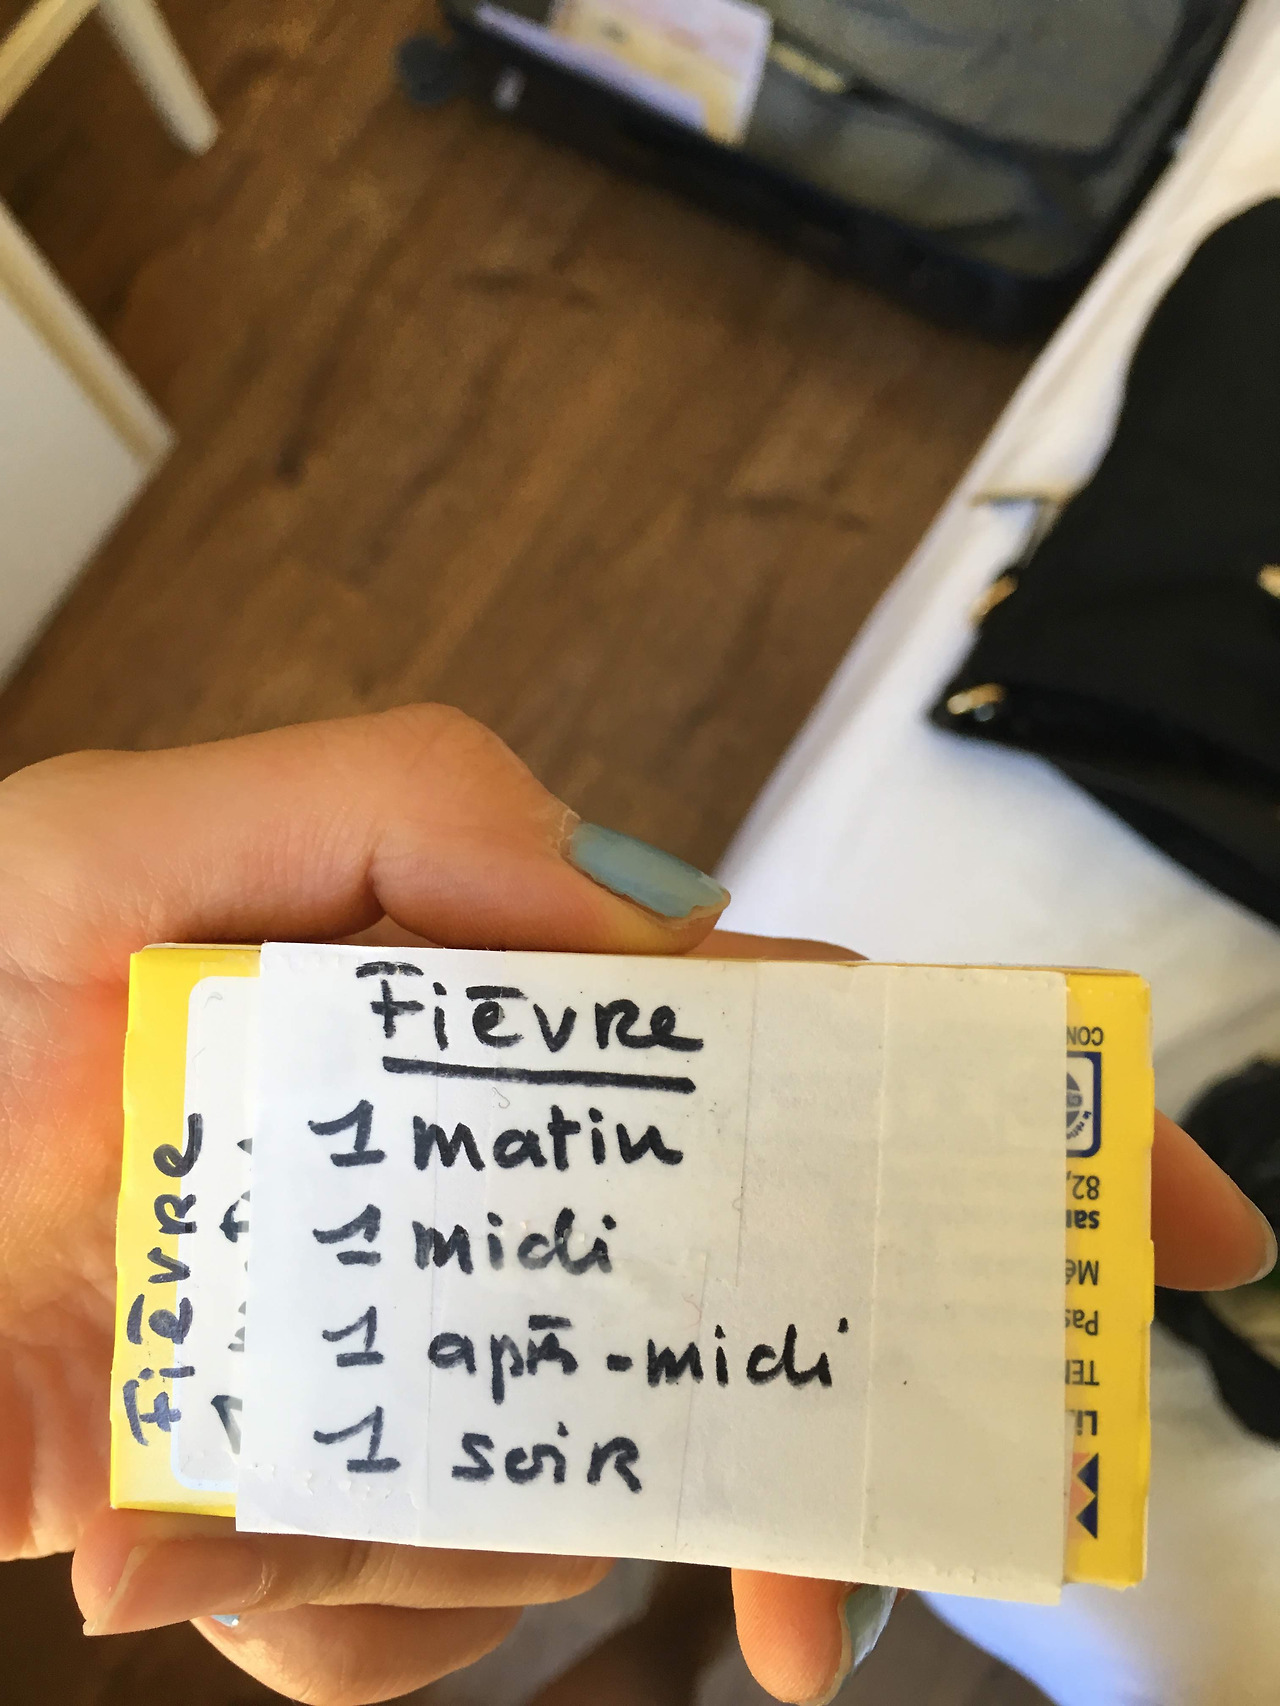 Fièvre
1 matin
1 midi
1 après-midi
1 soir
FièvRe
CON
82,
san
Mé
Pas
TEN
Li